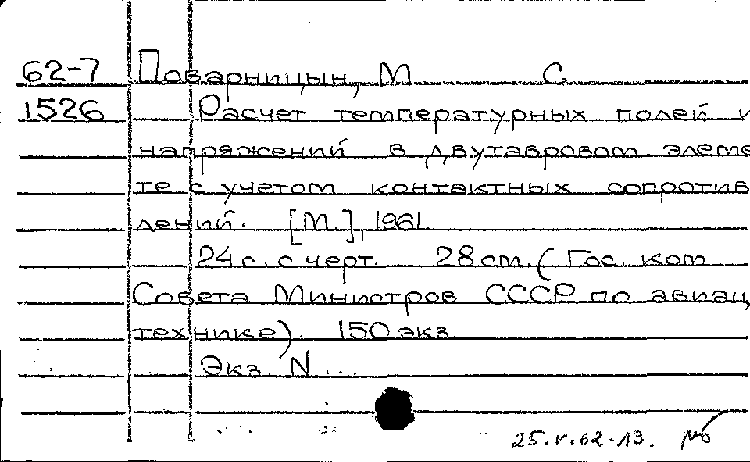 62-7 Поварницын, М С.
1526 Расчет температурных полей и
напряжений в двутавровом элеме
те с учетом контактных сопротив
лений. [М.], 1961.
24 с. с черт. 28 см. (Гос. ком
Совета Министров СССР по авиац
технике). 150 экз
Экз N
25.V.62-13.